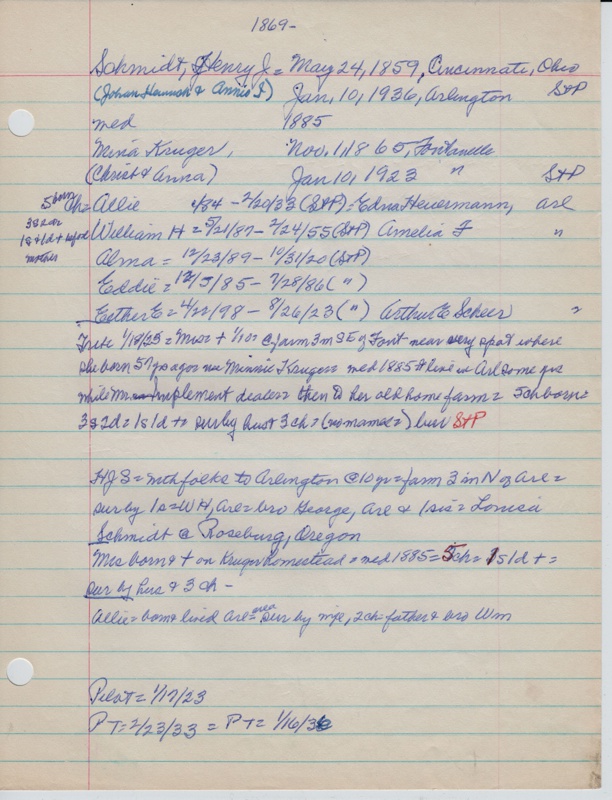 1869-
Schmidt, Henry J = May 24, 1859, Cincinnati, Ohio
(Johan Heinrich & Annie I) Jan, 10, 1936, Arlington S&P
med 1885
Mina Kruger, Nov. 1, 1865, Fontanelle
(Christ & Anna) Jan 10, 1923 " S&P
5 born ch = Allie /84 - 2/20/33 (S&P) = Edna Heuermann, arl
3s2d = 1s&1d + before mother
William H = 5/21/87 - 2/24/55 (S&P) Amelia F "
Alma = 12/23/89 - 10/31/20 (S&P)
Eddie = 12/5/85 - 7/28/86 (")
Esther E = 4/22/98 - 8/26/23 (") Arthur E Scheer "
1/18/23 = Mrs + 1/10 @ farm 3m SE of Font near very spot where
she born 57 yrs ago nee Minnie Kruger = med 1885 & live in Arl some yrs
while Mr. implement dealer = then to her old home farm = 5 ch born =
3s2d = 1s1d + sur by hust 3 ch = (no names) bur S&P
HJS = with folks to Arlington @ 10 yr = farm 3 mi N of Arl =
sur by 1s = WH, Arl = bro George, Arl & 1 sis = Louisa
Schmidt @ Roseburg, Oregon
Mrs born & + on Kruger homestead = med 1885 = 5 ch = 1s1d + =
sur by hus & 3 ch -
Allie = born & lived Arl = area sur by wife, 2 ch = father & bro Wm
Pilot = 1/17/23
PT = 2/23/33 = PT = 1/16/36